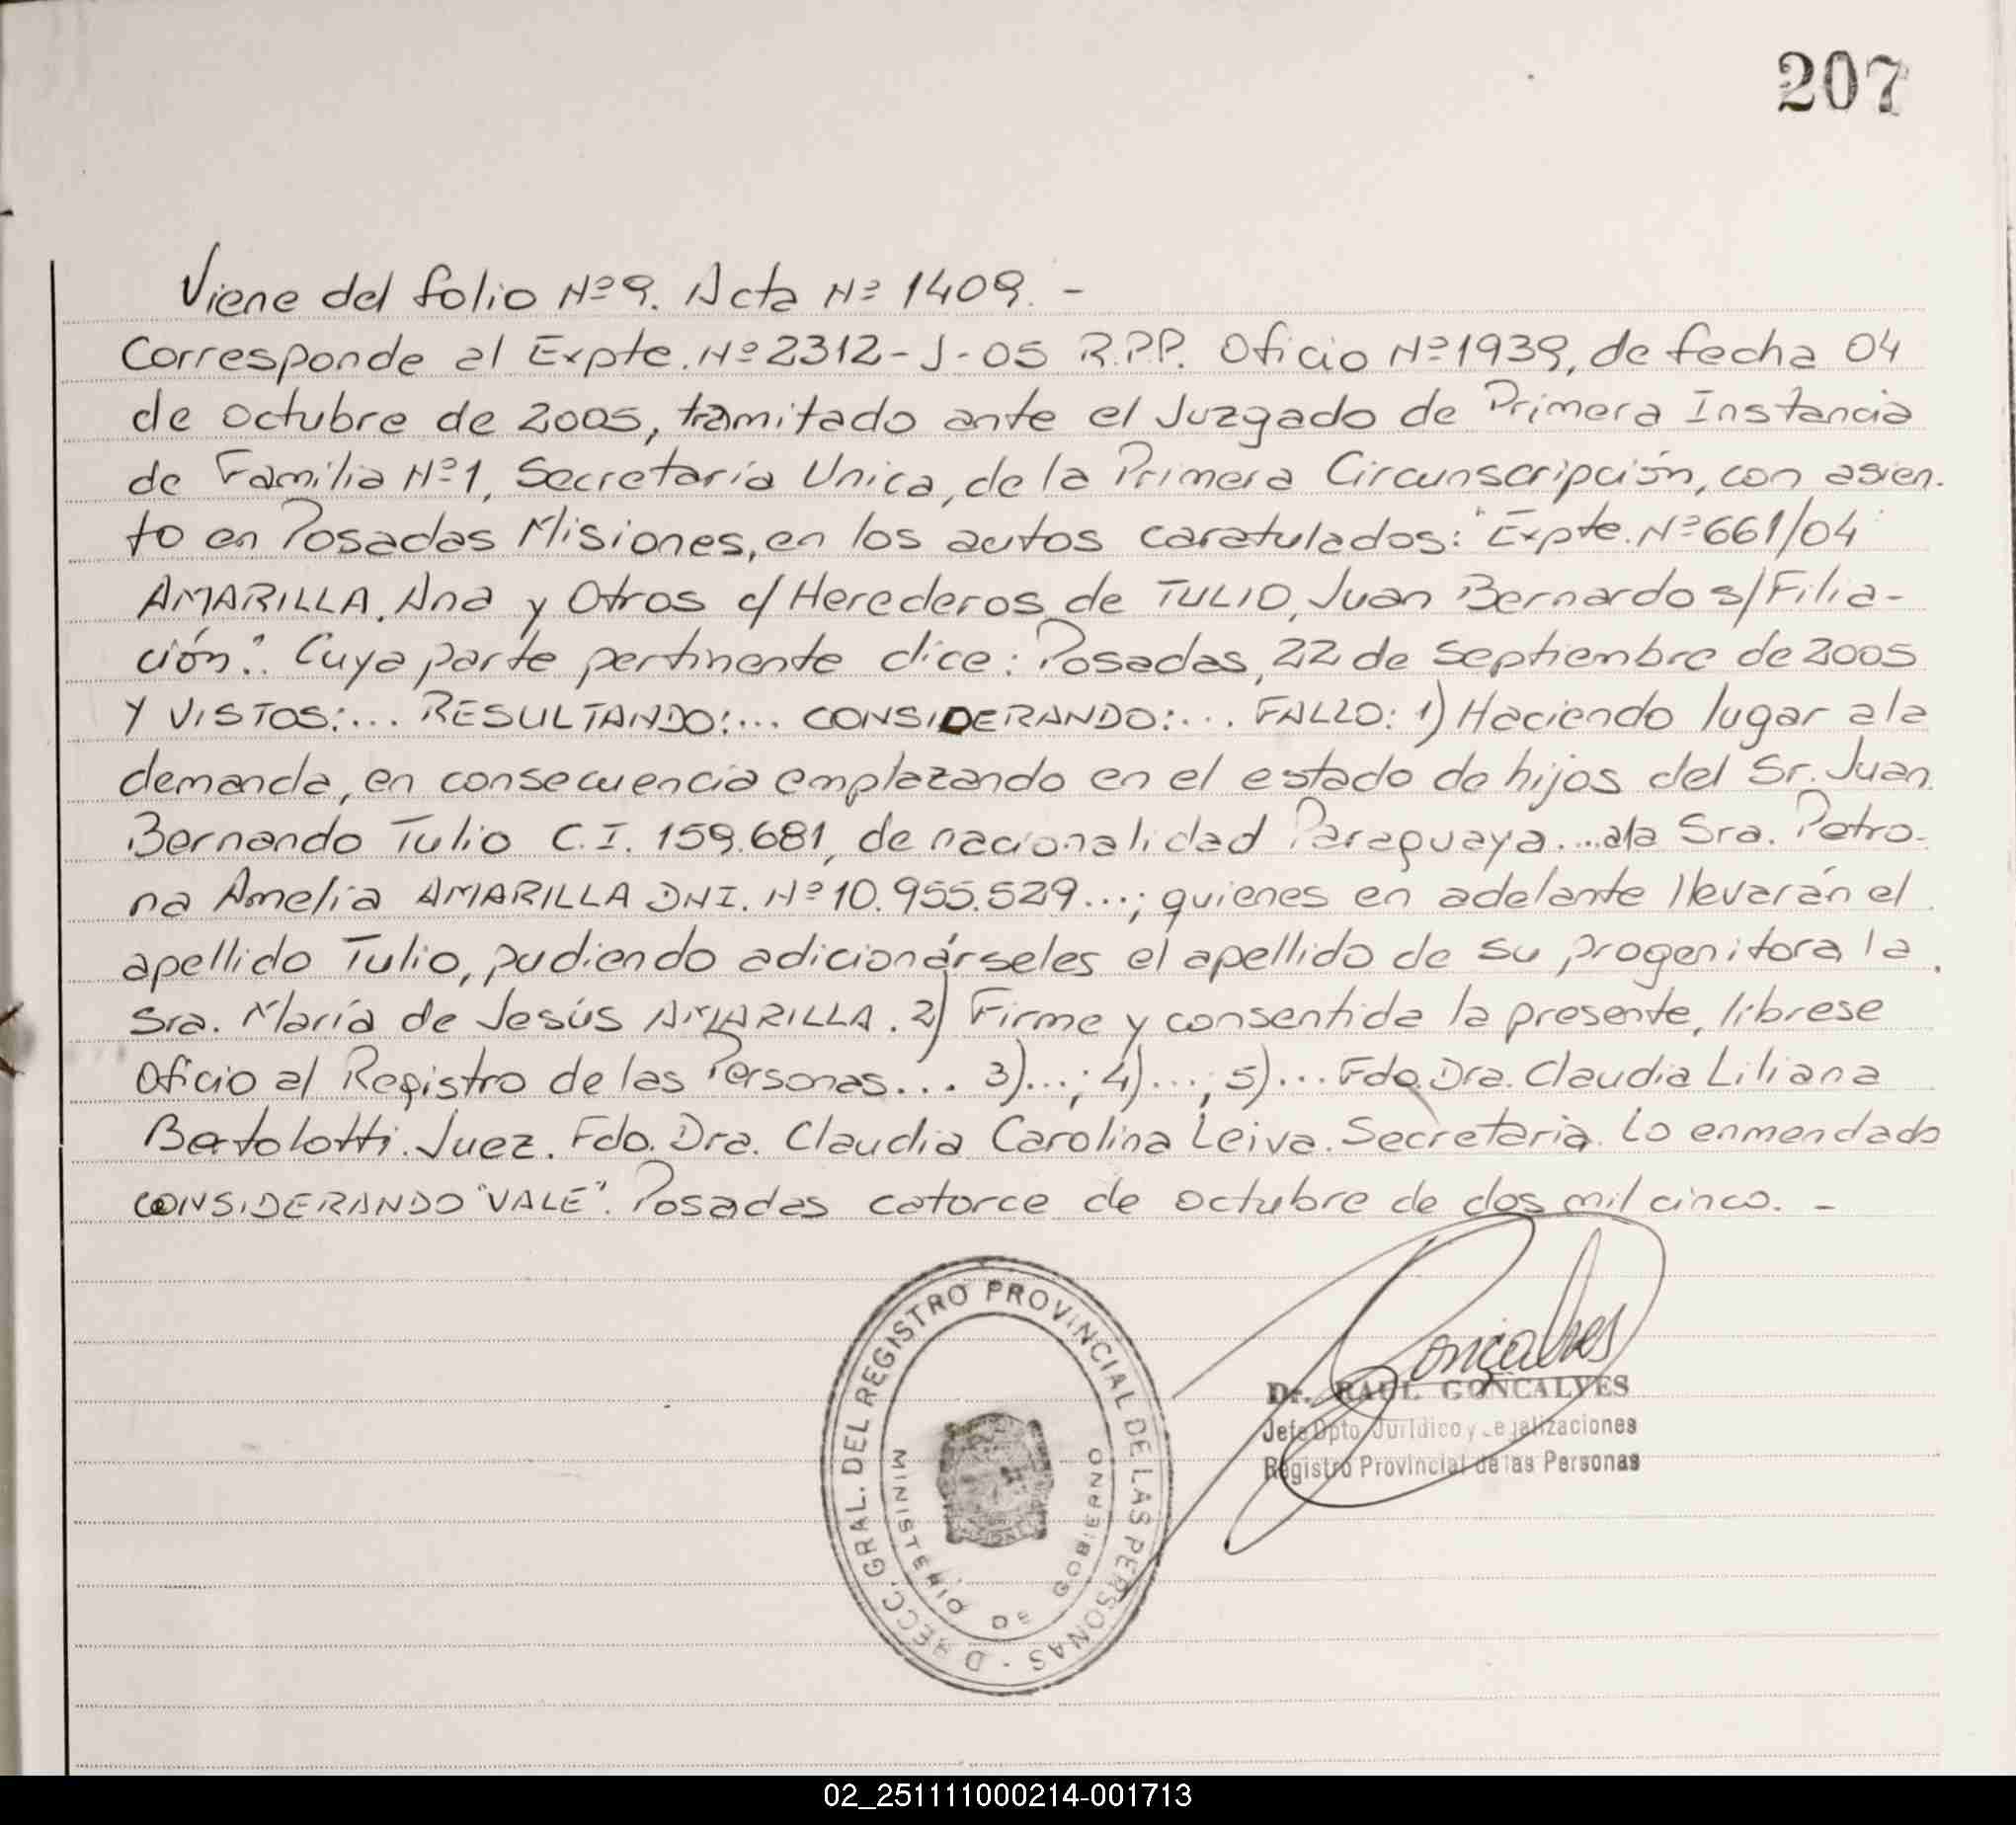 207
Viene del folio Nº9. Acta Nº 1409. -
Corresponde al Expte. Nº2312-J-05 R.P.P. Oficio Nº1939, de fecha 04
de octubre de 2005, tramitado ante el Juzgado de Primera Instancia
de Familia Nº1, Secretaría Unica, de la Primera Circunscripción, con asien.
to en Posadas Misiones, en los autos caratulados: "Expte. Nº661/04
AMARILLA, Ana y Otros c/ Herederos de TULIO, Juan Bernardo s/Filia-
ción". Cuya parte pertinente dice: Posadas, 22 de Septiembre de 2005
Y VISTOS:... RESULTANDO:... CONSIDERANDO:... FALLO: 1) Haciendo lugar a la
demanda, en consecuencia emplazando en el estado de hijos del Sr. Juan
Bernando Tulio C.I. 159.681, de nacionalidad Paraguaya....ala Sra. Petro-
na Amelia AMARILLA DNI. Nº10.955.529...; quienes en adelante llevarán el
apellido Tulio, pudiendo adicionárseles el apellido de su progenitora la
Sra. María de Jesús AMARILLA. 2) Firme y consentida la presente, líbrese
Oficio al Registro de las Personas... 3)...; 4)...; 5)... Fdo. Dra. Claudia Liliana
Bertolotti. Juez. Fdo. Dra. Claudia Carolina Leiva. Secretaria. Lo enmendado
CONSIDERANDO "VALE". Posadas catorce de octubre de dos mil cinco. -
DIRECC. GRAL. DEL REGISTRO PROVINCIAL DE LAS PERSONAS -
MINISTERIO DE GOBIERNO
Gonçalves
Dr. RAUL GONCALVES
Jefe Dpto. Jurídico y Legalizaciones
Registro Provincial de las Personas
02_251111000214-001713